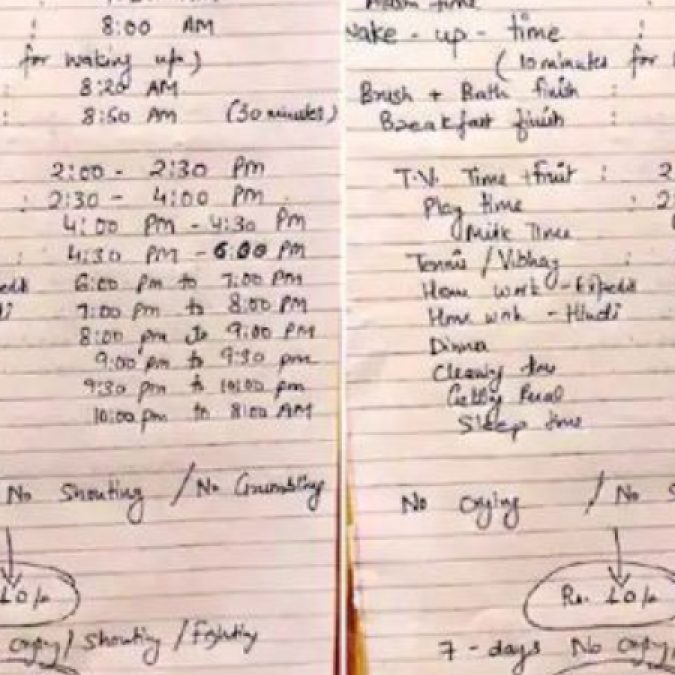 8:00 AM
for waking up)
: 8:20 AM
: 8:50 AM (30 minutes)
2:00 - 2:30 PM
: 2:30 - 4:00 PM
4:00 PM - 4:30 PM
: 4:30 PM - 6:00 PM
6:00 Pm to 7:00 PM
7:00 pm to 8:00 PM
8:00 pm to 9:00 PM
9:00 pm to 9:30 pm
9:30 pm to 10:00 pm
10:00 pm to 8:00 AM
No Shouting / No Grumbling
10/-
crying / Shouting / Fighting
time
wake - up - time :
(10 minutes for
Brush + Bath finish :
Breakfast finish :
T.V. Time + Fruit : 2
Play time : 2:
Milk Time
Tennis / :
Home work - 
Home work - Hindi
Dinner
Cleaning time
Sleep time
No Crying / No S
Rs. 10/-
7 - days No crying